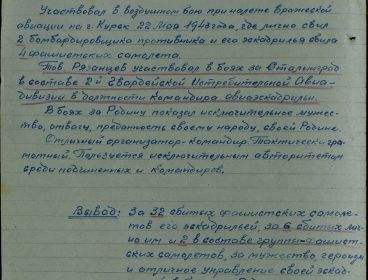 Участвовал в воздушном бою при налете вражеской
авиации на г. Курск 22 мая 1943 года, где лично сбил
2 бомбардировщика противника и его эскадрилья сбила
4 фашистских самолета.
Тов. Рязанцев участвовал в боях за Сталинград
в составе 2й Гвардейской Истребительной Авиа-
дивизии в должности командира авиаэскадрилии.
В боях за Родину показал исключительное мужес-
тво, отвагу, преданность своему народу, своей Родине.
Отличный организатор-командир. Тактически гра-
мотный. Пользуется исключительным авторитетом
среди подчиненных и командиров.
Вывод: За 32 сбитых фашистских самоле-
тов его эскадрильей, за 6 сбитых лич-
но им и 2 в составе группы фашист-
ских самолетов, за мужество, героизм
и отличное управление своей эскад-